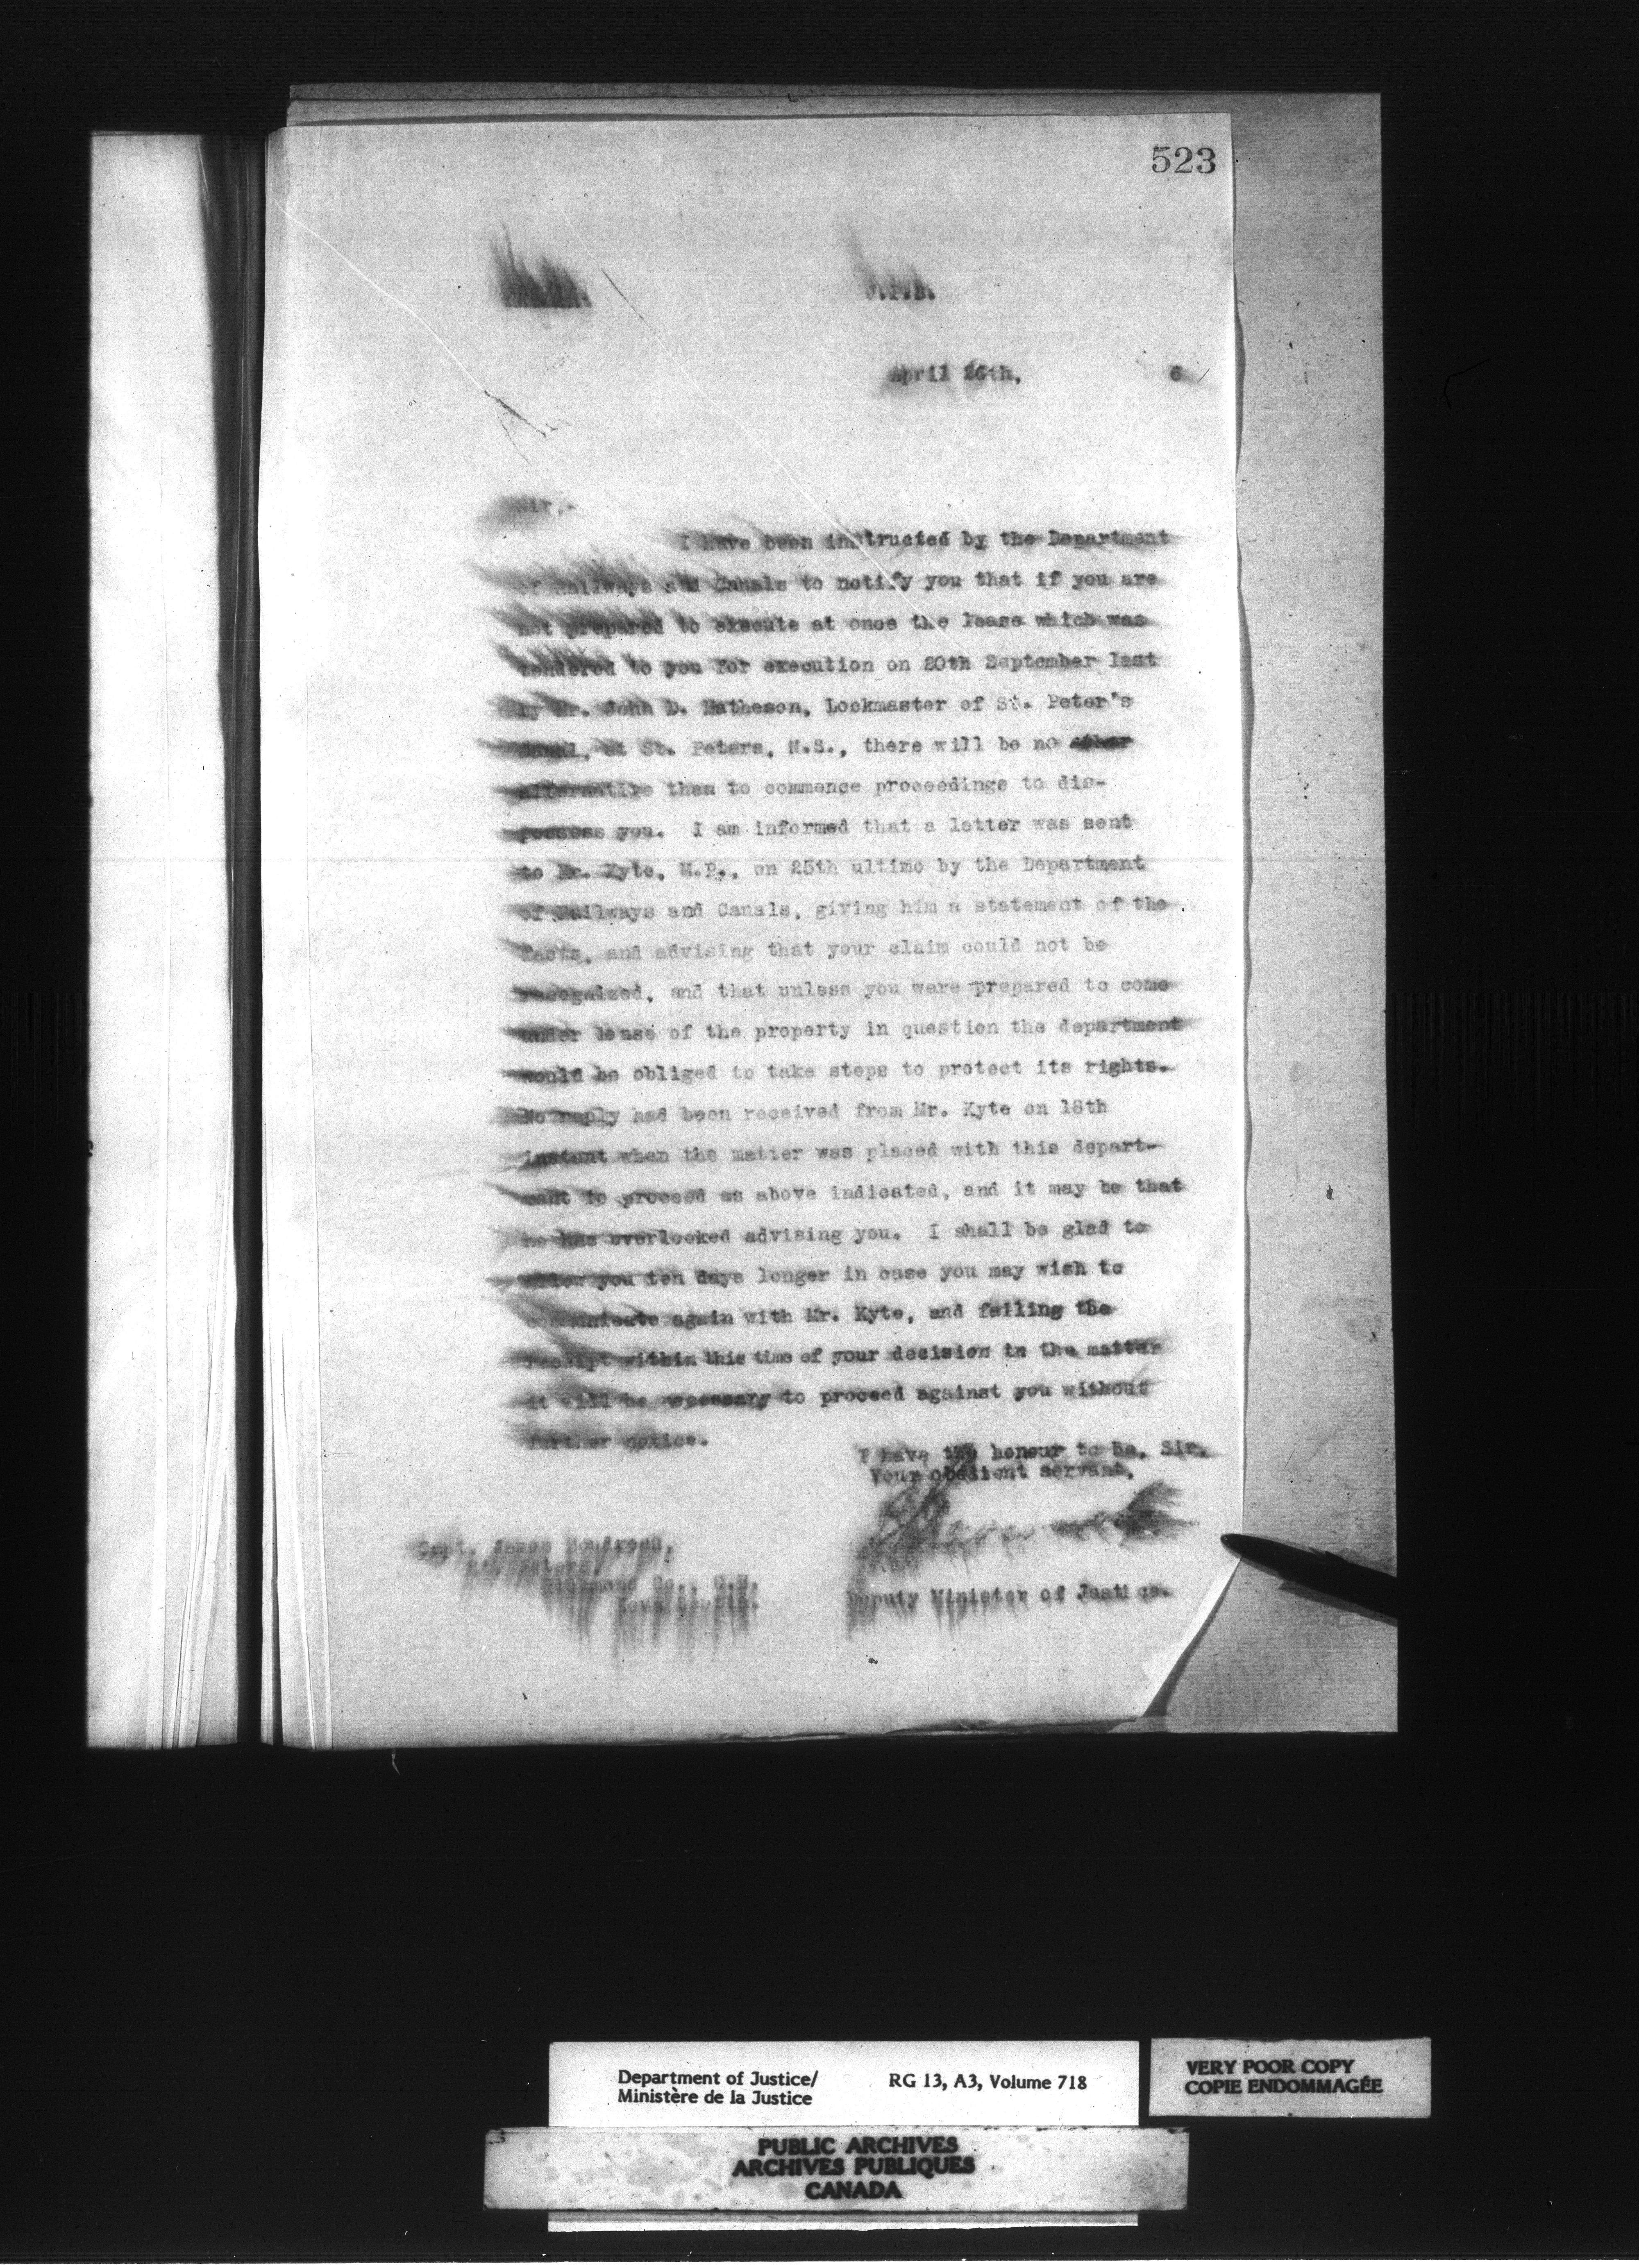 523
April 26th, 6
Sir,-
I have been instructed by the Department
of Railways and Canals to notify you that if you are
not prepared to execute at once the lease which was
tendered to you for execution on 20th September last
by Mr. John D. Matheson, Lockmaster of St. Peter's
Canal, at St. Peters, N.S., there will be no other
alternative than to commence proceedings to dis-
possess you. I am informed that a letter was sent
to Mr. Kyte, M.P., on 25th ultimo by the Department
of Railways and Canals, giving him a statement of the
facts, and advising that your claim could not be
recognized, and that unless you were prepared to come
under lease of the property in question the department
would be obliged to take steps to protect its rights.
No reply had been received from Mr. Kyte on 18th
instant when the matter was placed with this depart-
ment to proceed as above indicated, and it may be that
he has overlooked advising you. I shall be glad to
allow you ten days longer in case you may wish to
communicate again with Mr. Kyte, and failing the
receipt within this time of your decision in the matter
it will be necessary to proceed against you without
further notice.
I have the honour to be, Sir,
Your obedient servant,
Deputy Minister of Justice.
Capt. James Boudreau,
Richmond Co., C.B.
Nova Scotia.
Department of Justice/ RG 13, A3, Volume 718
Ministère de la Justice
VERY POOR COPY
COPIE ENDOMMAGÉE
PUBLIC ARCHIVES
ARCHIVES PUBLIQUES
CANADA